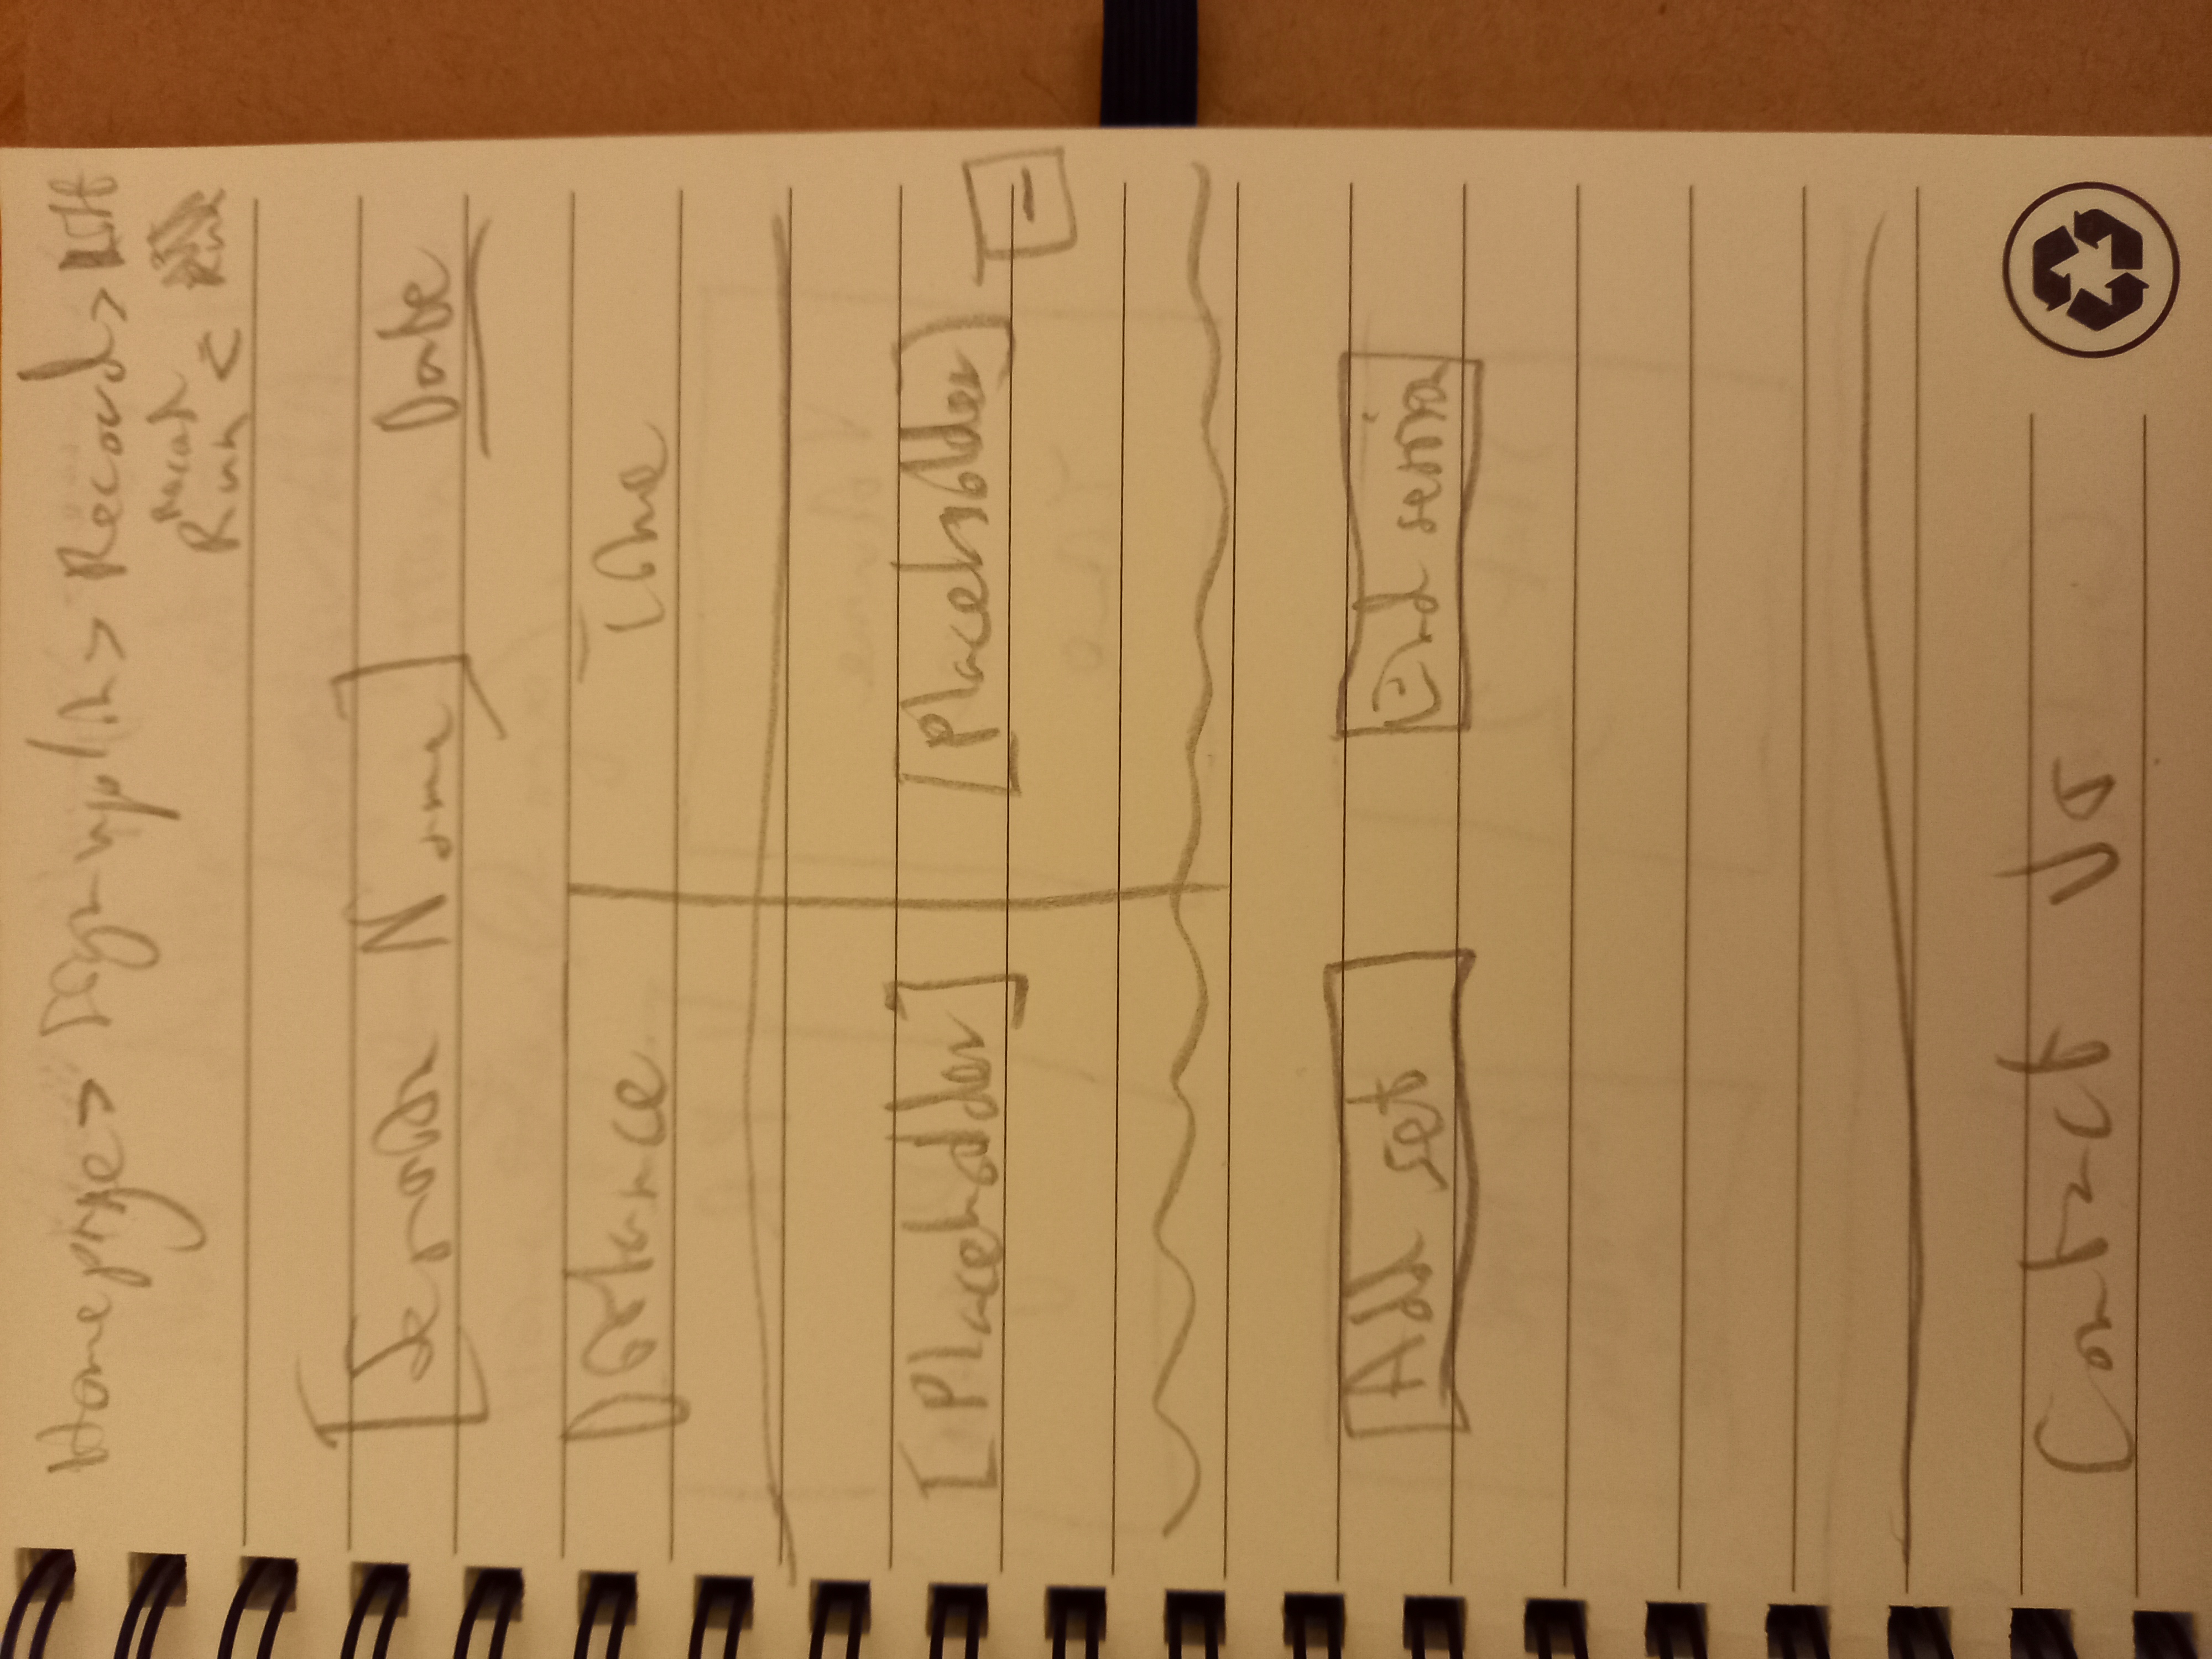 Homepage > Sign up/in > Record > Lift
Record
Run < Run
[Session Name] Date
Distance Time
[Placeholder] [Placeholder] -
Add set End session
Contact Us